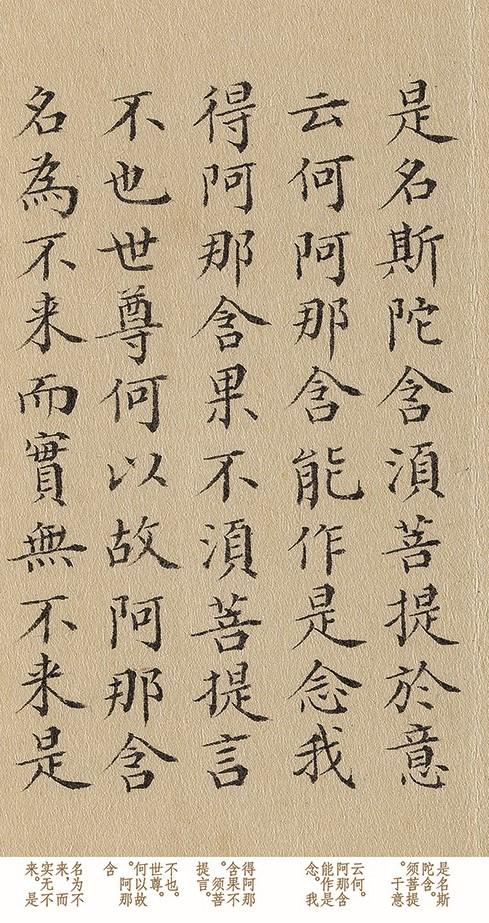 是名斯陀含須菩提於意
云何阿那含能作是念我
得阿那含果不須菩提言
不也世尊何以故阿那含
名為不来而實無不来是
是名斯
陀含。
须菩提
。于意
云何。
阿那含
能作是
念。我
得阿那
含果不
。须菩
提言。
不也。
世尊。
何以故
。阿那
含
名为不
来，而
实无不
来。是